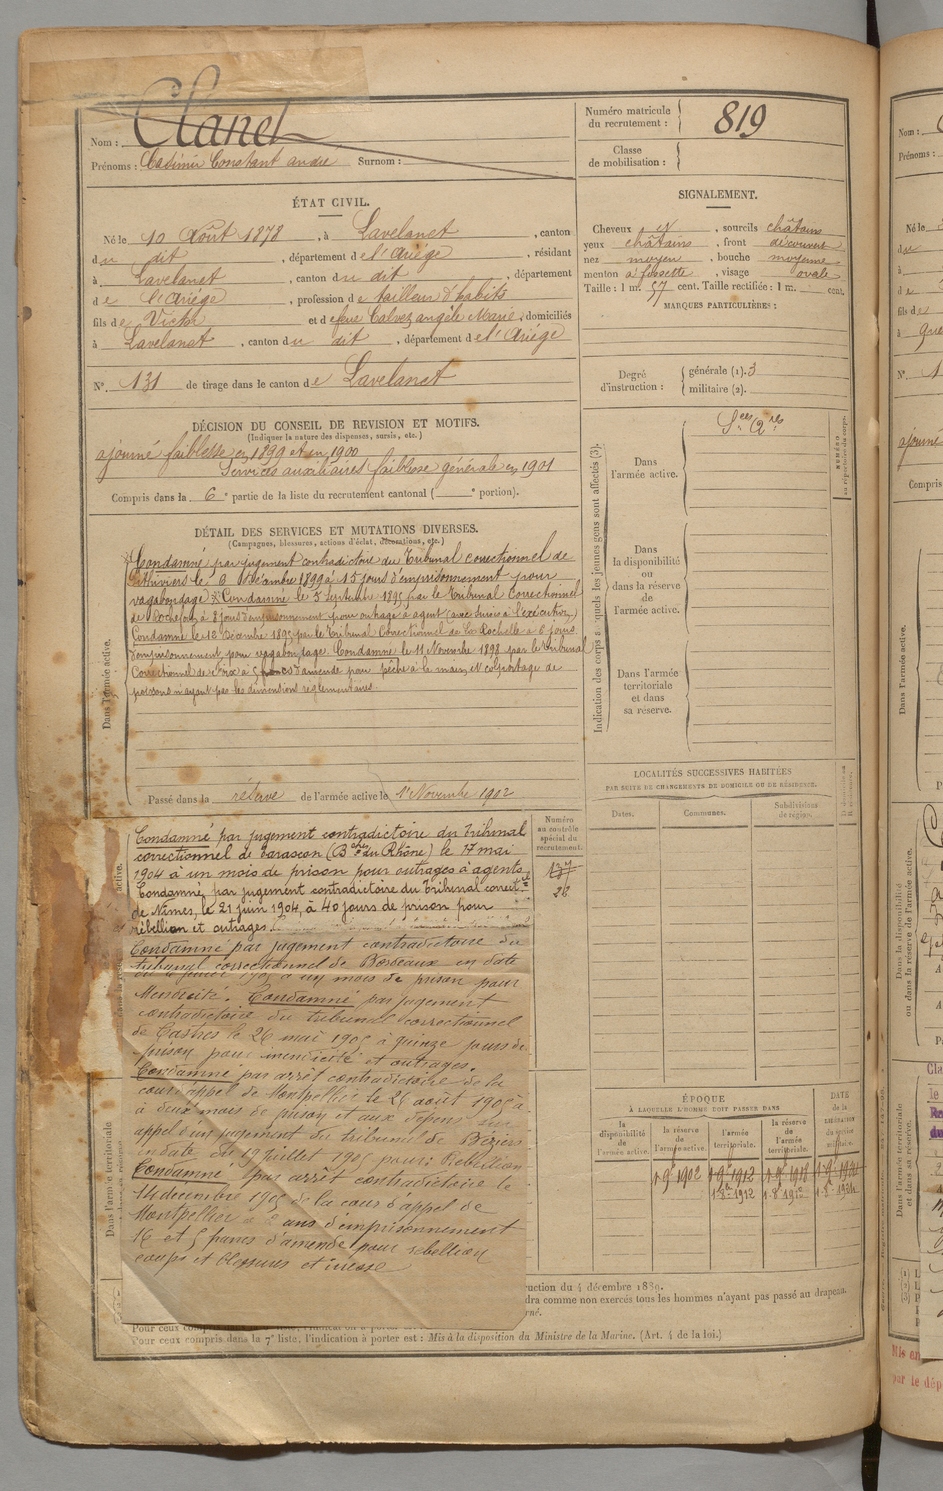 Nom : Clanet
Prénoms : Casimir Constant andré Surnom :
Numéro matricule du recrutement : 819
Classe de mobilisation :
ÉTAT CIVIL.
Né le 10 Août 1878, à Lavelanet, canton
du dit, département de l'Ariége, résidant
à Lavelanet, canton du dit, département
de l'Ariége, profession de tailleur d'habits
fils de Victor et de feue Calvez angèle Marie, domiciliés
à Lavelanet, canton du dit, département de l'Ariége
N° 131 de tirage dans le canton de Lavelanet
SIGNALEMENT.
Cheveux et, sourcils châtains
yeux châtains, front découvert
nez moyen, bouche moyenne
menton à fossette, visage ovale
Taille : 1 m. 57 cent. Taille rectifiée : 1 m. cent.
MARQUES PARTICULIÈRES :
Degré d'instruction : générale (1). 3
militaire (2).
DÉCISION DU CONSEIL DE REVISION ET MOTIFS.
(Indiquer la nature des dispenses, sursis, etc.)
ajourné faiblesse en 1899 et en 1900
Services auxiliaires faiblesse générale en 1901
Compris dans la 6e partie de la liste du recrutement cantonal ( e portion).
DÉTAIL DES SERVICES ET MUTATIONS DIVERSES.
(Campagnes, blessures, actions d'éclat, décorations, etc.)
Condamné par jugement contradictoire du Tribunal correctionnel de
Pithiviers le 6 Décembre 1899 à 15 jours d'emprisonnement pour
vagabondage. Condamné le 5 Septembre 1895 par le Tribunal Correctionnel
de Rochefort à 8 jours d'emprisonnement pour outrage à agent (avec sursis à l'exécution)
Condamné le 12 Décembre 1895 par le Tribunal Correctionnel de La Rochelle à 8 jours
d'emprisonnement pour vagabondage. Condamné le 11 Novembre 1898 par le Tribunal
Correctionnel de Foix à 5 francs d'amende pour pêche à la main et colportage de
poissons n'ayant pas les dimensions réglementaires
Dans l'armée active.
Passé dans la réserve de l'armée active le 1er Novembre 1902
Condamné par jugement contradictoire du tribunal
correctionnel de Tarascon (Bches du Rhône) le 17 mai
1904 à un mois de prison pour outrages à agents
Condamné, par jugement contradictoire du tribunal correctel
de Nîmes, le 21 juin 1904, à 40 jours de prison pour
rébellion et outrages.
Condamné par jugement contradictoire du
tribunal correctionnel de Bordeaux en date
février 1905 à un mois de prison pour
Mendicité. Condamné par jugement
contradictoire du tribunal correctionnel
de Castres le 26 mai 1905 à quinze jours de
prison pour mendicité et outrages.
Condamné par arrêt contradictoire de la
cour d'appel de Montpellier le 25 août 1905 à
à deux mois de prison et aux dépens sur
appel d'un jugement du tribunal de Béziers
en date du 19 juillet 1905 pour : Rebellion
Condamné par arrêt contradictoire le
14 decembre 1905 de la cour d'appel de
Montpellier à 2 ans d'emprisonnement
16 et 5 francs d'amende pour rebellion
coups et blessures et ivresse
Numéro au contrôle spécial du recrutement.
137
28
Indication des corps auxquels les jeunes gens sont affectés (3).
Dans l'armée active.
Sces Qres
Dans la disponibilité ou dans la réserve de l'armée active.
Dans l'armée territoriale et dans sa réserve.
LOCALITÉS SUCCESSIVES HABITÉES
PAR SUITE DE CHANGEMENTS DE DOMICILE OU DE RÉSIDENCE.
Dates. Communes. Subdivisions de région.
ÉPOQUE
À LAQUELLE L'HOMME DOIT PASSER DANS
la disponibilité de l'armée active. la réserve de l'armée active. l'armée territoriale. la réserve de l'armée territoriale.
DATE de la LIBÉRATION du service militaire.
1-9bre 1902
Dans l'armée territoriale
ruction du 4 décembre 1889.
dra comme non exercés tous les hommes n'ayant pas passé au drapeau.
Pour ceux compris dans la 7e liste, l'indication à porter est : Mis à la disposition du Ministre de la Marine. (Art. 4 de la loi.)
Nom :
Prénoms :
Né le
ajourné
Compris